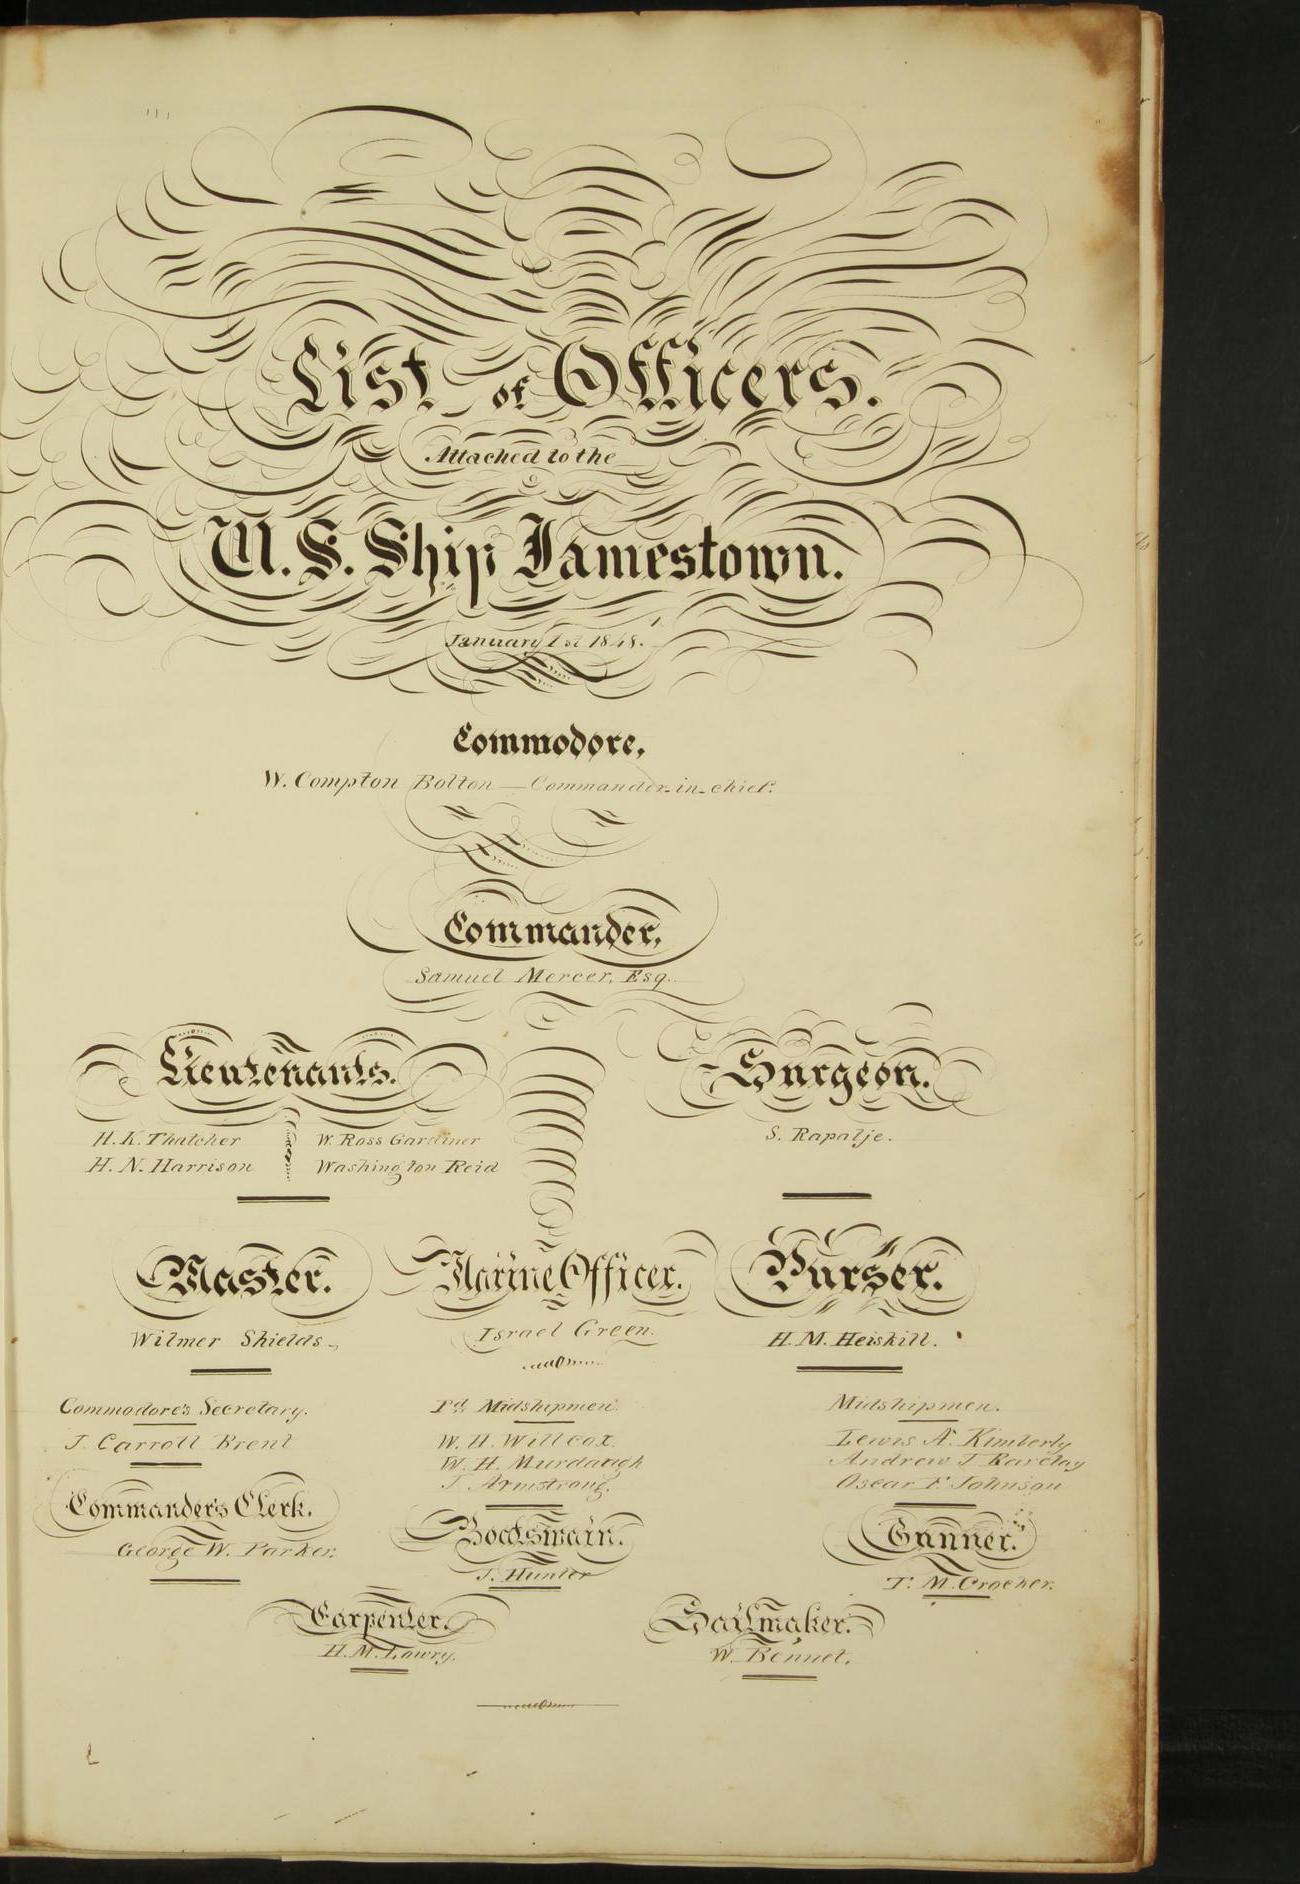 List of Officers.
Attached to the
U.S. Ship Jamestown.
January 1st 1848.
Commodore,
W. Compton Bolton — Commander-in-chief.
Commander,
Samuel Mercer, Esq.
Lieutenants.
H. K. Thatcher
H. N. Harrison
W. Ross Gardiner
Washington Reid
Surgeon.
S. Rapalje.
Master.
Wilmer Shields
Marine Officer.
Israel Green.
Purser.
H. M. Heiskill.
Commodore's Secretary.
J. Carroll Brent
Commander's Clerk.
George W. Parker.
Pd Midshipmen.
W. H. Willcox.
W. H. Murdaugh
J. Armstrong.
Boatswain.
J. Hunter
Midshipmen.
Lewis A. Kimberly
Andrew J Barclay
Oscar F Johnson
Gunner.
T. M. Crocker.
Carpenter.
H. M. Lowry.
Sailmaker.
W. Bennet.